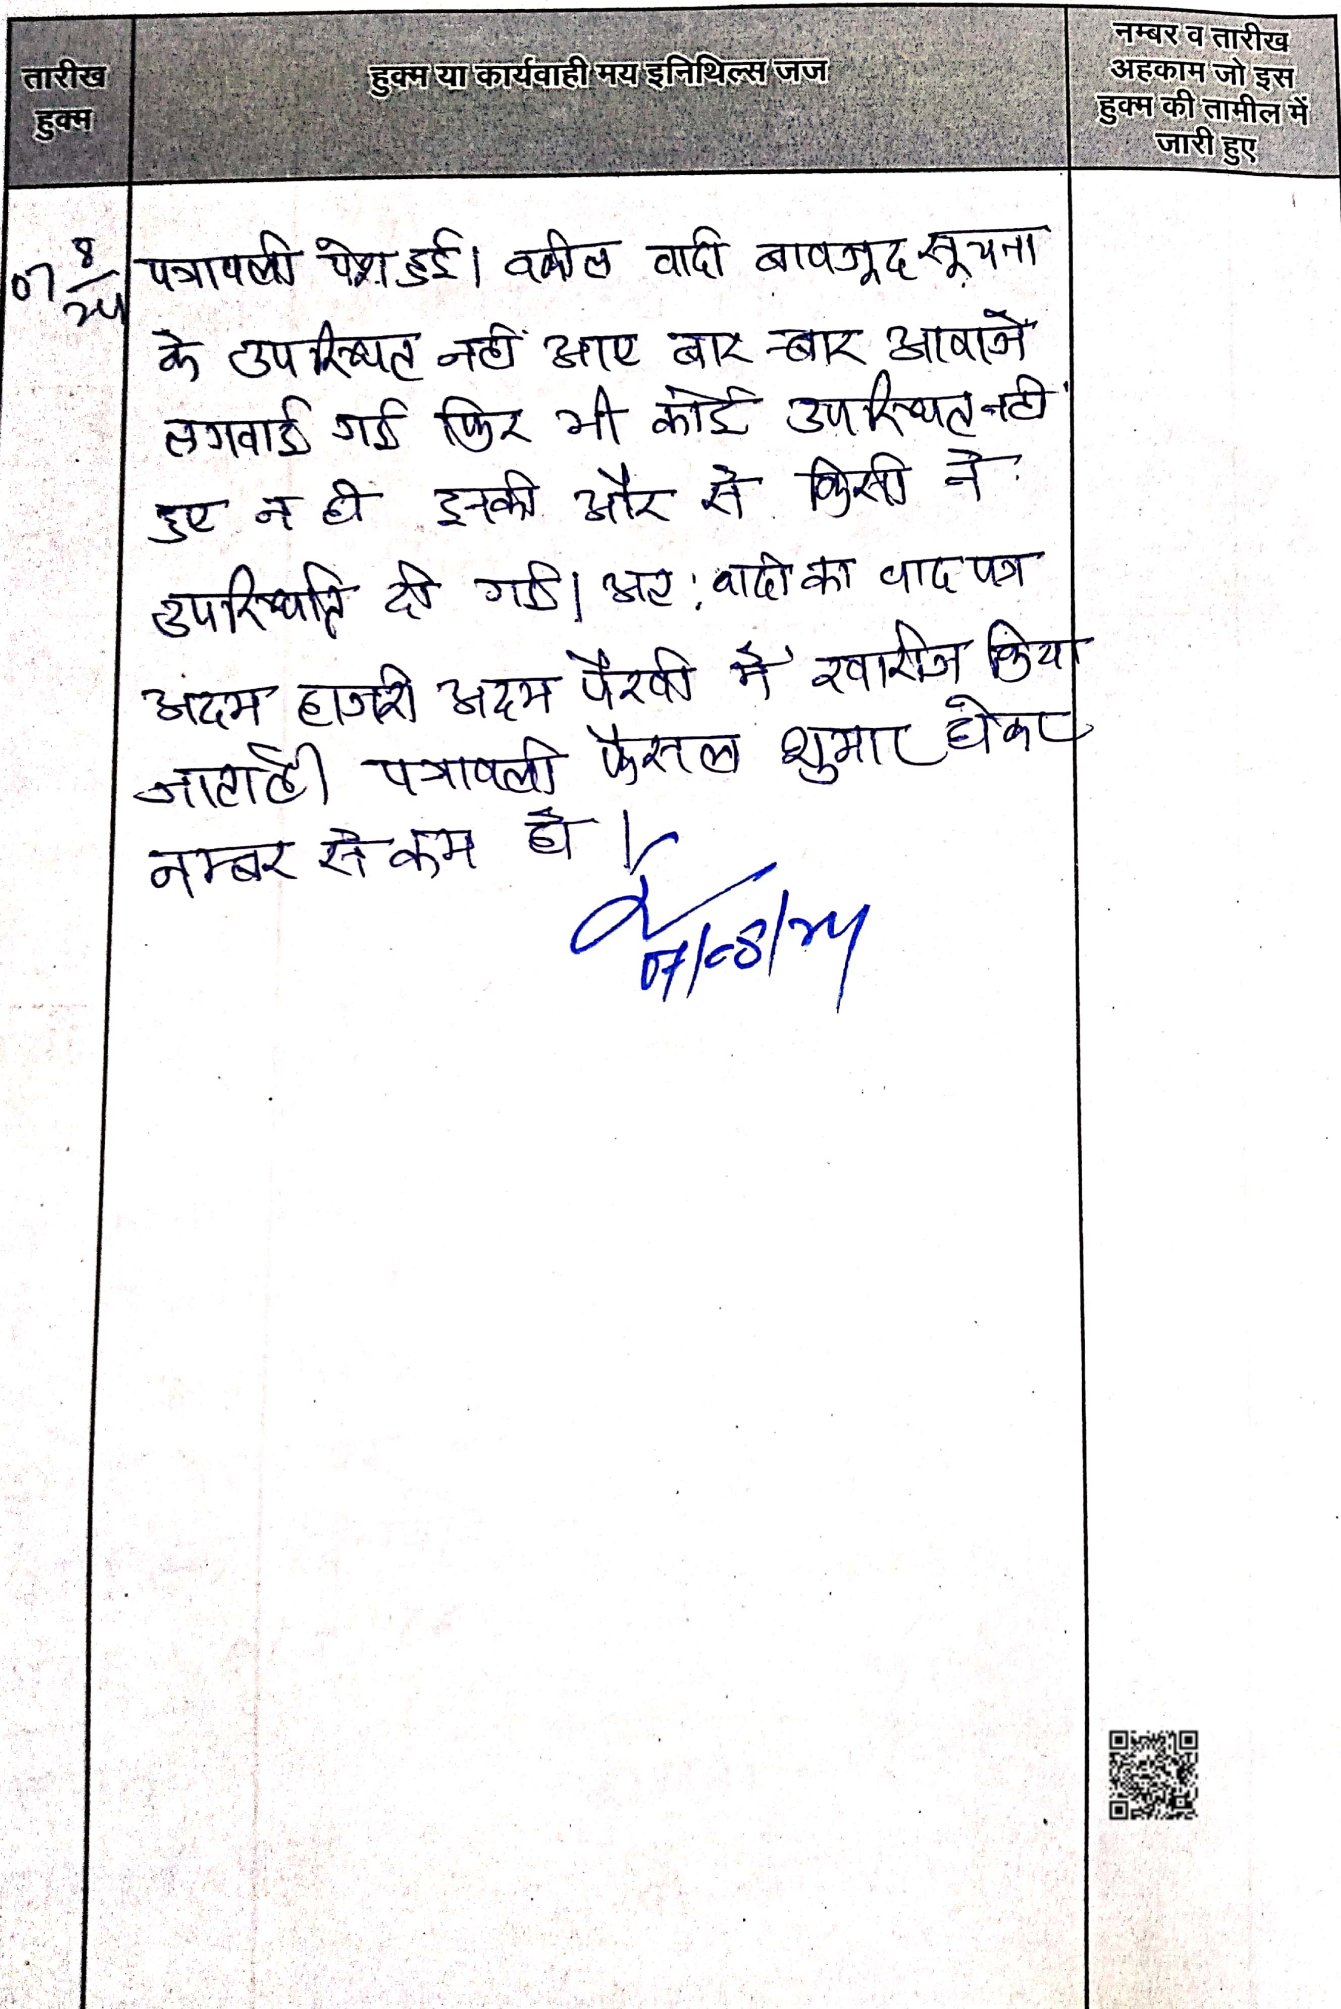 तारीख
हुक्म
हुक्म या कार्यवाही मय इनिथिल्स जज
नम्बर व तारीख
अहकाम जो इस
हुक्म की तामील में
जारी हुए
07/8/24
पत्रावली पेश हुई। वकील वादी बावजूद सूचना
के उपस्थित नहीं आए बार-बार आवाजें
लगवाई गई फिर भी कोई उपस्थित नहीं
हुए न ही इनकी और से किसी ने
उपस्थिति दी गई। अत: वादी का वाद पत्र
अदम हाजरी अदम पैरवी में खारीज किया
जाता है। पत्रावली फैसल शुमार होकर
नम्बर से कम हो।
07/08/24